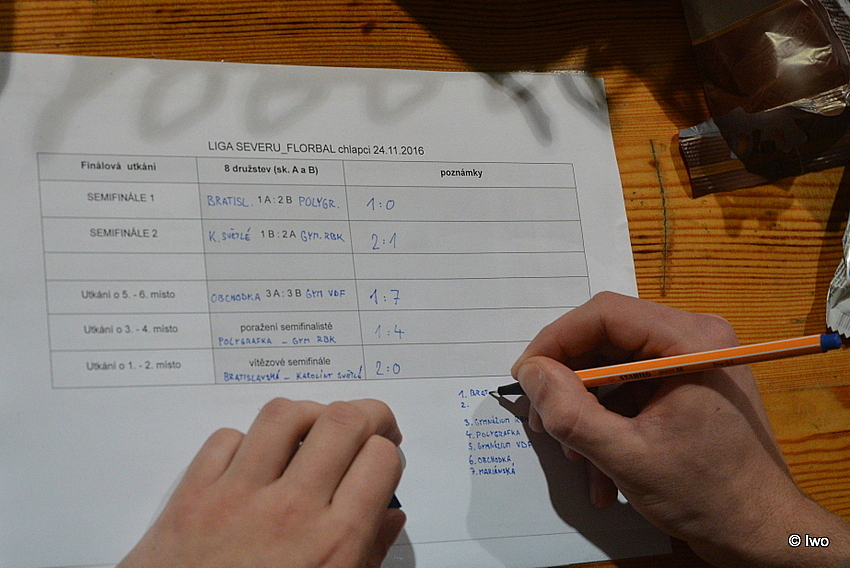 LIGA SEVERU_FLORBAL chlapci 24.11.2016
Finálová utkání 8 družstev (sk. A a B) poznámky
SEMIFINÁLE 1 BRATISL. 1 A : 2 B POLYGR. 1:0
SEMIFINÁLE 2 K. SVĚTLÉ 1 B : 2 A GYM. RBK 2:1
Utkání o 5. - 6. místo OBCHODKA 3 A : 3 B GYM VDF 1:7
Utkání o 3. - 4. místo poražení semifinalisté 1:4
POLYGRAFKA - GYM RBK
Utkání o 1. - 2. místo vítězové semifinále 2:0
BRATISLAVSKÁ - KAROLINY SVĚTLÉ
1. BRAT
2.
3. GYMNÁZIUM RBK
4. POLYGRAFKA
5. GYMNÁZIUM VDF
6. OBCHODKA
7. MARIÁNSKÁ
STABILO
© Iwo